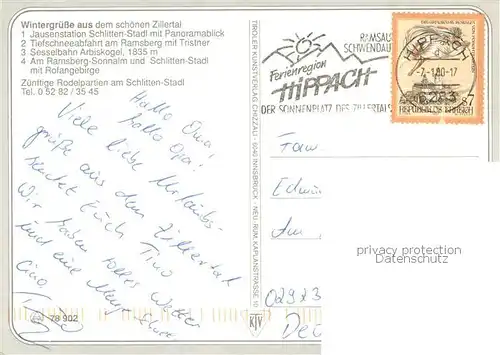 Wintergrüße aus dem schönen Zillertal
1 Jausenstation Schlitten-Stadl mit Panoramablick
2 Tiefschneeabfahrt am Ramsberg mit Tristner
3 Sesselbahn Arbiskogel, 1835 m
4 Am Ramsberg-Sonnalm und Schlitten-Stadl
mit Rofangebirge
Zünftige Rodelpartien am Schlitten-Stadl
Tel. 0 52 82 / 35 45
Hallo Oma,
hallo Opa!
Viele liebe Urlaubs-
grüße aus dem Zillertal
sendet Euch Tino
Wir haben tolles Wetter
und eine Menge
Ciao
78 902
TIROLER KUNSTVERLAG CHIZZALI · 6040 INNSBRUCK · NEU-RUM, KAPLANSTRASSE 10
KTV
RAMSAU
SCHWENDAU
Ferienregion
HIPPACH
DER SONNENPLATZ DES ZILLERTALS
HIPPACH
6283
REPUBLIK ÖSTERREICH
S7
Fam.
Am
privacy protection
Datenschutz